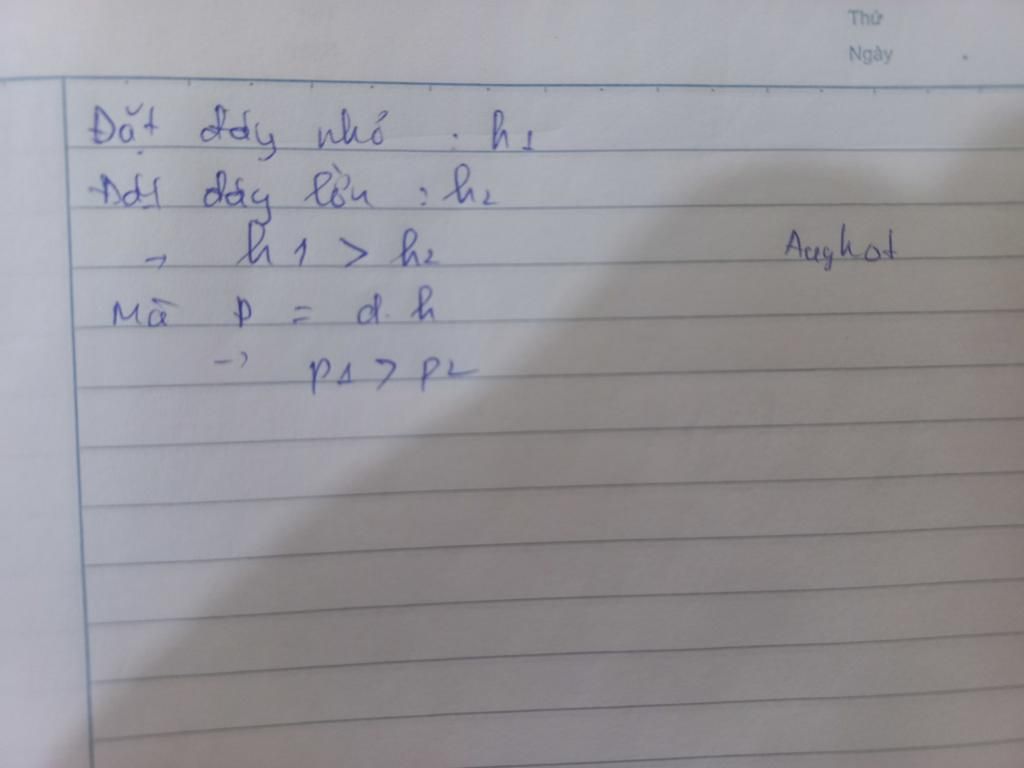 Thứ
Ngày
Đặt đáy nhỏ : h1
Đặt đáy lớn : h2
→ h1 > h2
Mà p = d.h
→ p1 > p2